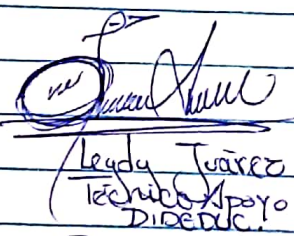 Leydy Juárez
Técnico Apoyo
DIDEDUC.